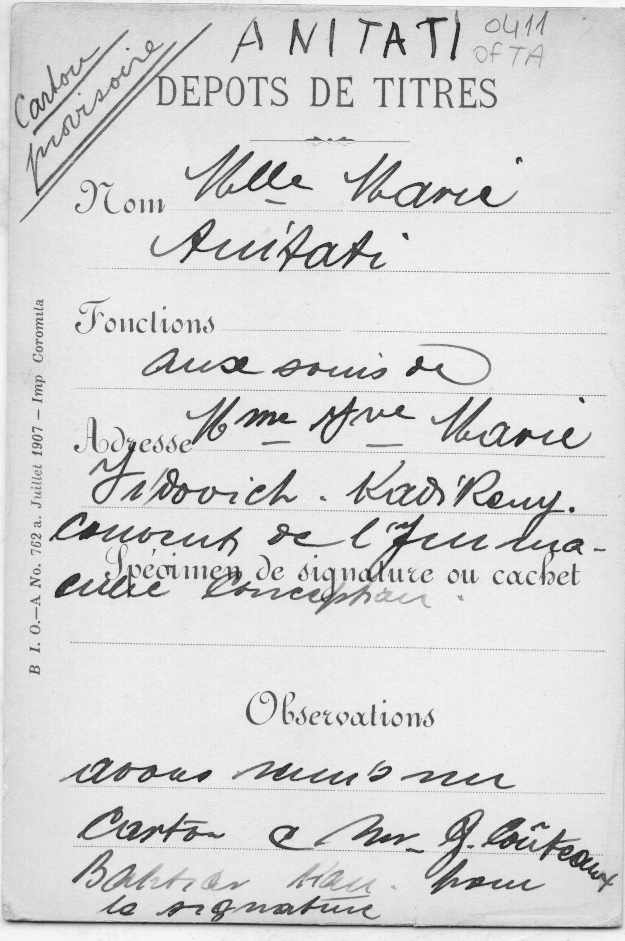 ANITATI 0411
OFTA
Carton
provisoire
DEPOTS DE TITRES
Nom Mlle Marie
Anitati
Fonctions
aux soins de
Adresse Mme Vve Marie
Vidovich. Kadi Keuy.
Couvent de l'Imma-
culée Conception.
Spécimen de signature ou cachet
Observations
avons remis un
Carton à Mr. Couteaux
pour
la signature
B I. O.—A No. 762 a. Juillet 1907 — Imp Coromila